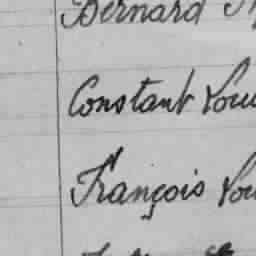 Bernard
Constant Lou
François Lou